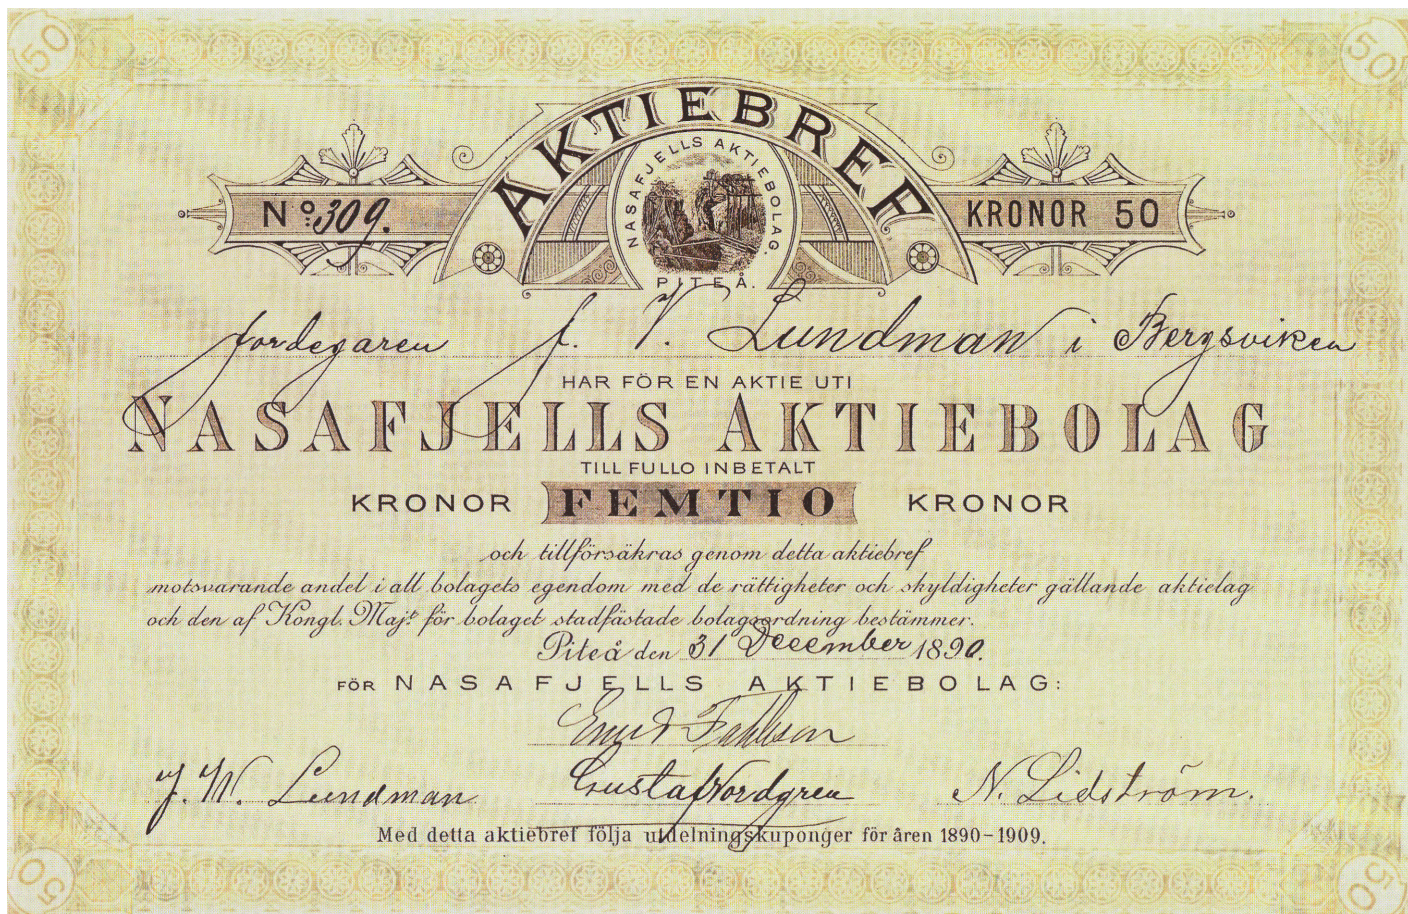 50
50
AKTIEBREF
Nº 309.
NASAFJELLS AKTIEBOLAG.
PITEÅ.
KRONOR 50
jordegaren J. V. Lundman i Bergsviken
HAR FÖR EN AKTIE UTI
NASAFJELLS AKTIEBOLAG
TILL FULLO INBETALT
KRONOR FEMTIO KRONOR
och tillförsäkras genom detta aktiebref
motsvarande andel i all bolagets egendom med de rättigheter och skyldigheter gällande aktielag
och den af Kongl. Maj:t för bolaget stadfästade bolagsordning bestämmer.
Piteå den 31 December 1890.
FÖR NASAFJELLS AKTIEBOLAG:
J. W. Lundman
Gustaf Nordgren
N. Lidström.
Med detta aktiebref följa utdelningskuponger för åren 1890-1909.
50
50